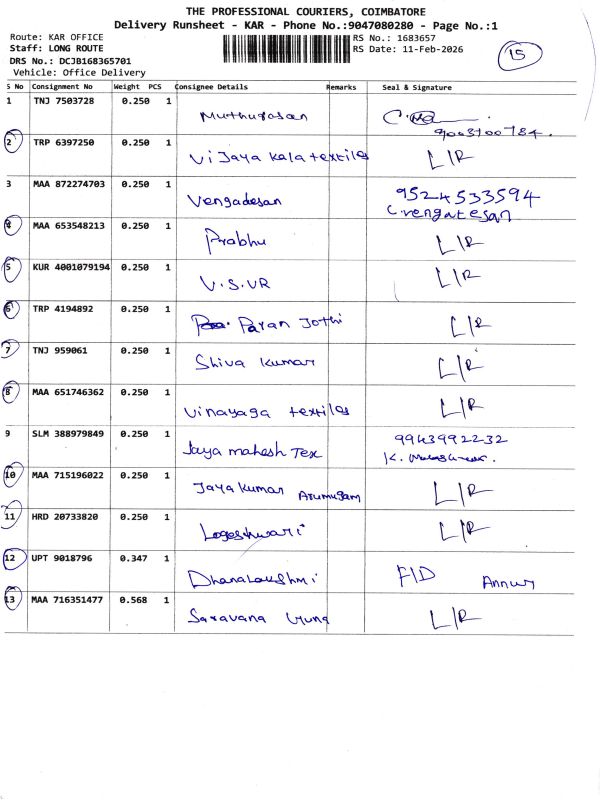 THE PROFESSIONAL COURIERS, COIMBATORE
Delivery Runsheet - KAR - Phone No.:9047080280 - Page No.:1
Route: KAR OFFICE
RS No.: 1683657
Staff: LONG ROUTE
RS Date: 11-Feb-2026
15
DRS No.: DCJB168365701
Vehicle: Office Delivery
S No Consignment No Weight PCS Consignee Details Remarks Seal & Signature
1 TNJ 7503728 0.250 1 Muthurasan
9003100784.
2 TRP 6397250 0.250 1 Vijaya kala textiles L/R
3 MAA 872274703 0.250 1 Vengadesan 9524533594
C.vengatesan
4 MAA 653548213 0.250 1 Prabhu L/R
5 KUR 4001079194 0.250 1 V.S.VR L/R
6 TRP 4194892 0.250 1 Paran Jothi L/R
7 TNJ 959061 0.250 1 Shiva Kumar L/R
8 MAA 651746362 0.250 1 Vinayaga textiles L/R
9 SLM 388979849 0.250 1 Jaya mahesh Tex 9943992232
K.
10 MAA 715196022 0.250 1 Jaya kumar Arumugam L/R
11 HRD 20733820 0.250 1 Logeshwari L/R
12 UPT 9018796 0.347 1 Dhanalakshmi F/D Annur
13 MAA 716351477 0.568 1 Saravana L/R